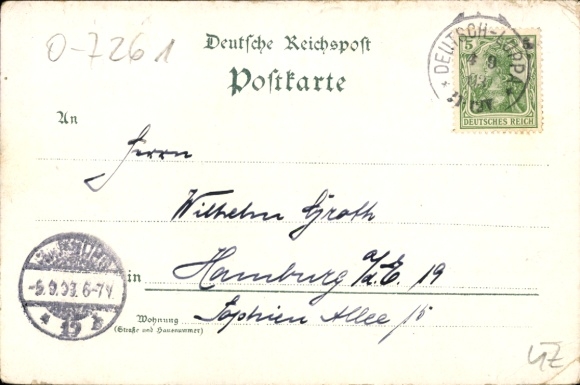 O-7261
Deutsche Reichspost
Postkarte
5
DEUTSCHES REICH
* DEUTSCH-LUPPA *
An
Herrn
Wilhelm Groth
in Hamburg a/d. E. 19
Sophien Allee /5
Wohnung
(Straße und Hausnummer)
-5.9.03. 6-7V.
* 19 b